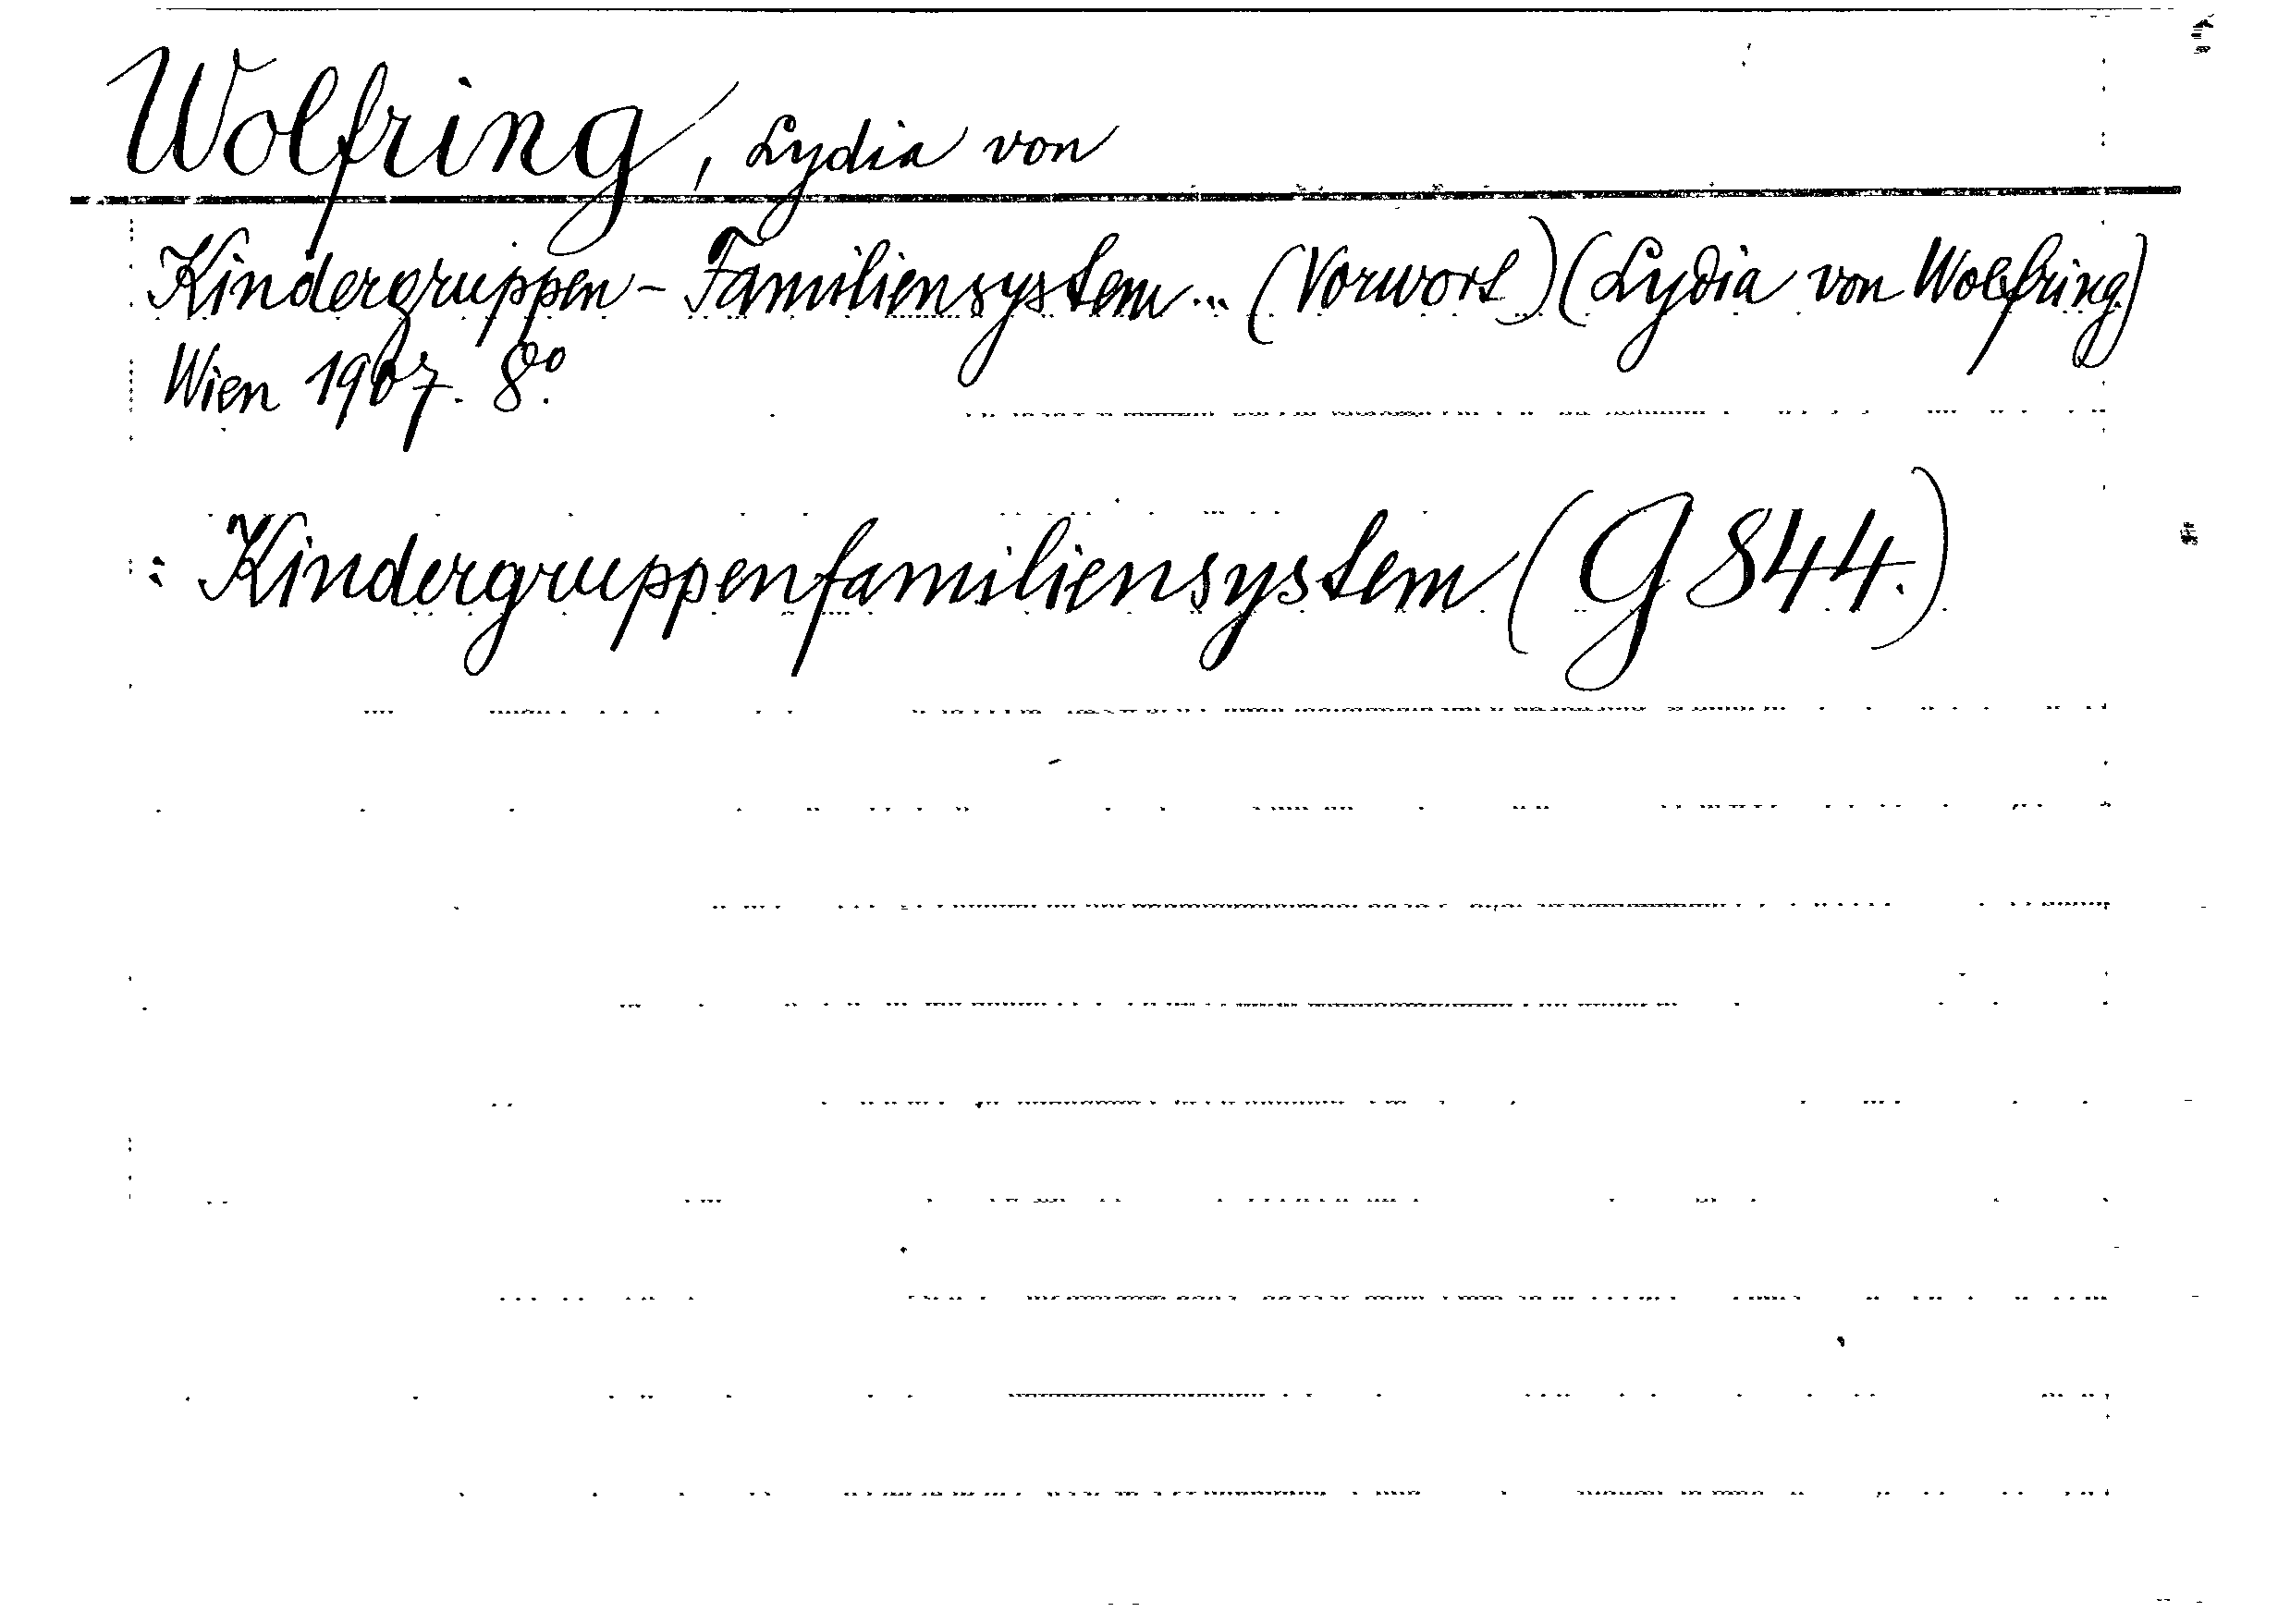 Wolfring, Lydia von
Kindergruppen-Familiensystem... (Vorwort) (Lydia von Wolfring.)
Wien 1907. 8°.
: Kindergruppenfamiliensystem (G 844.)